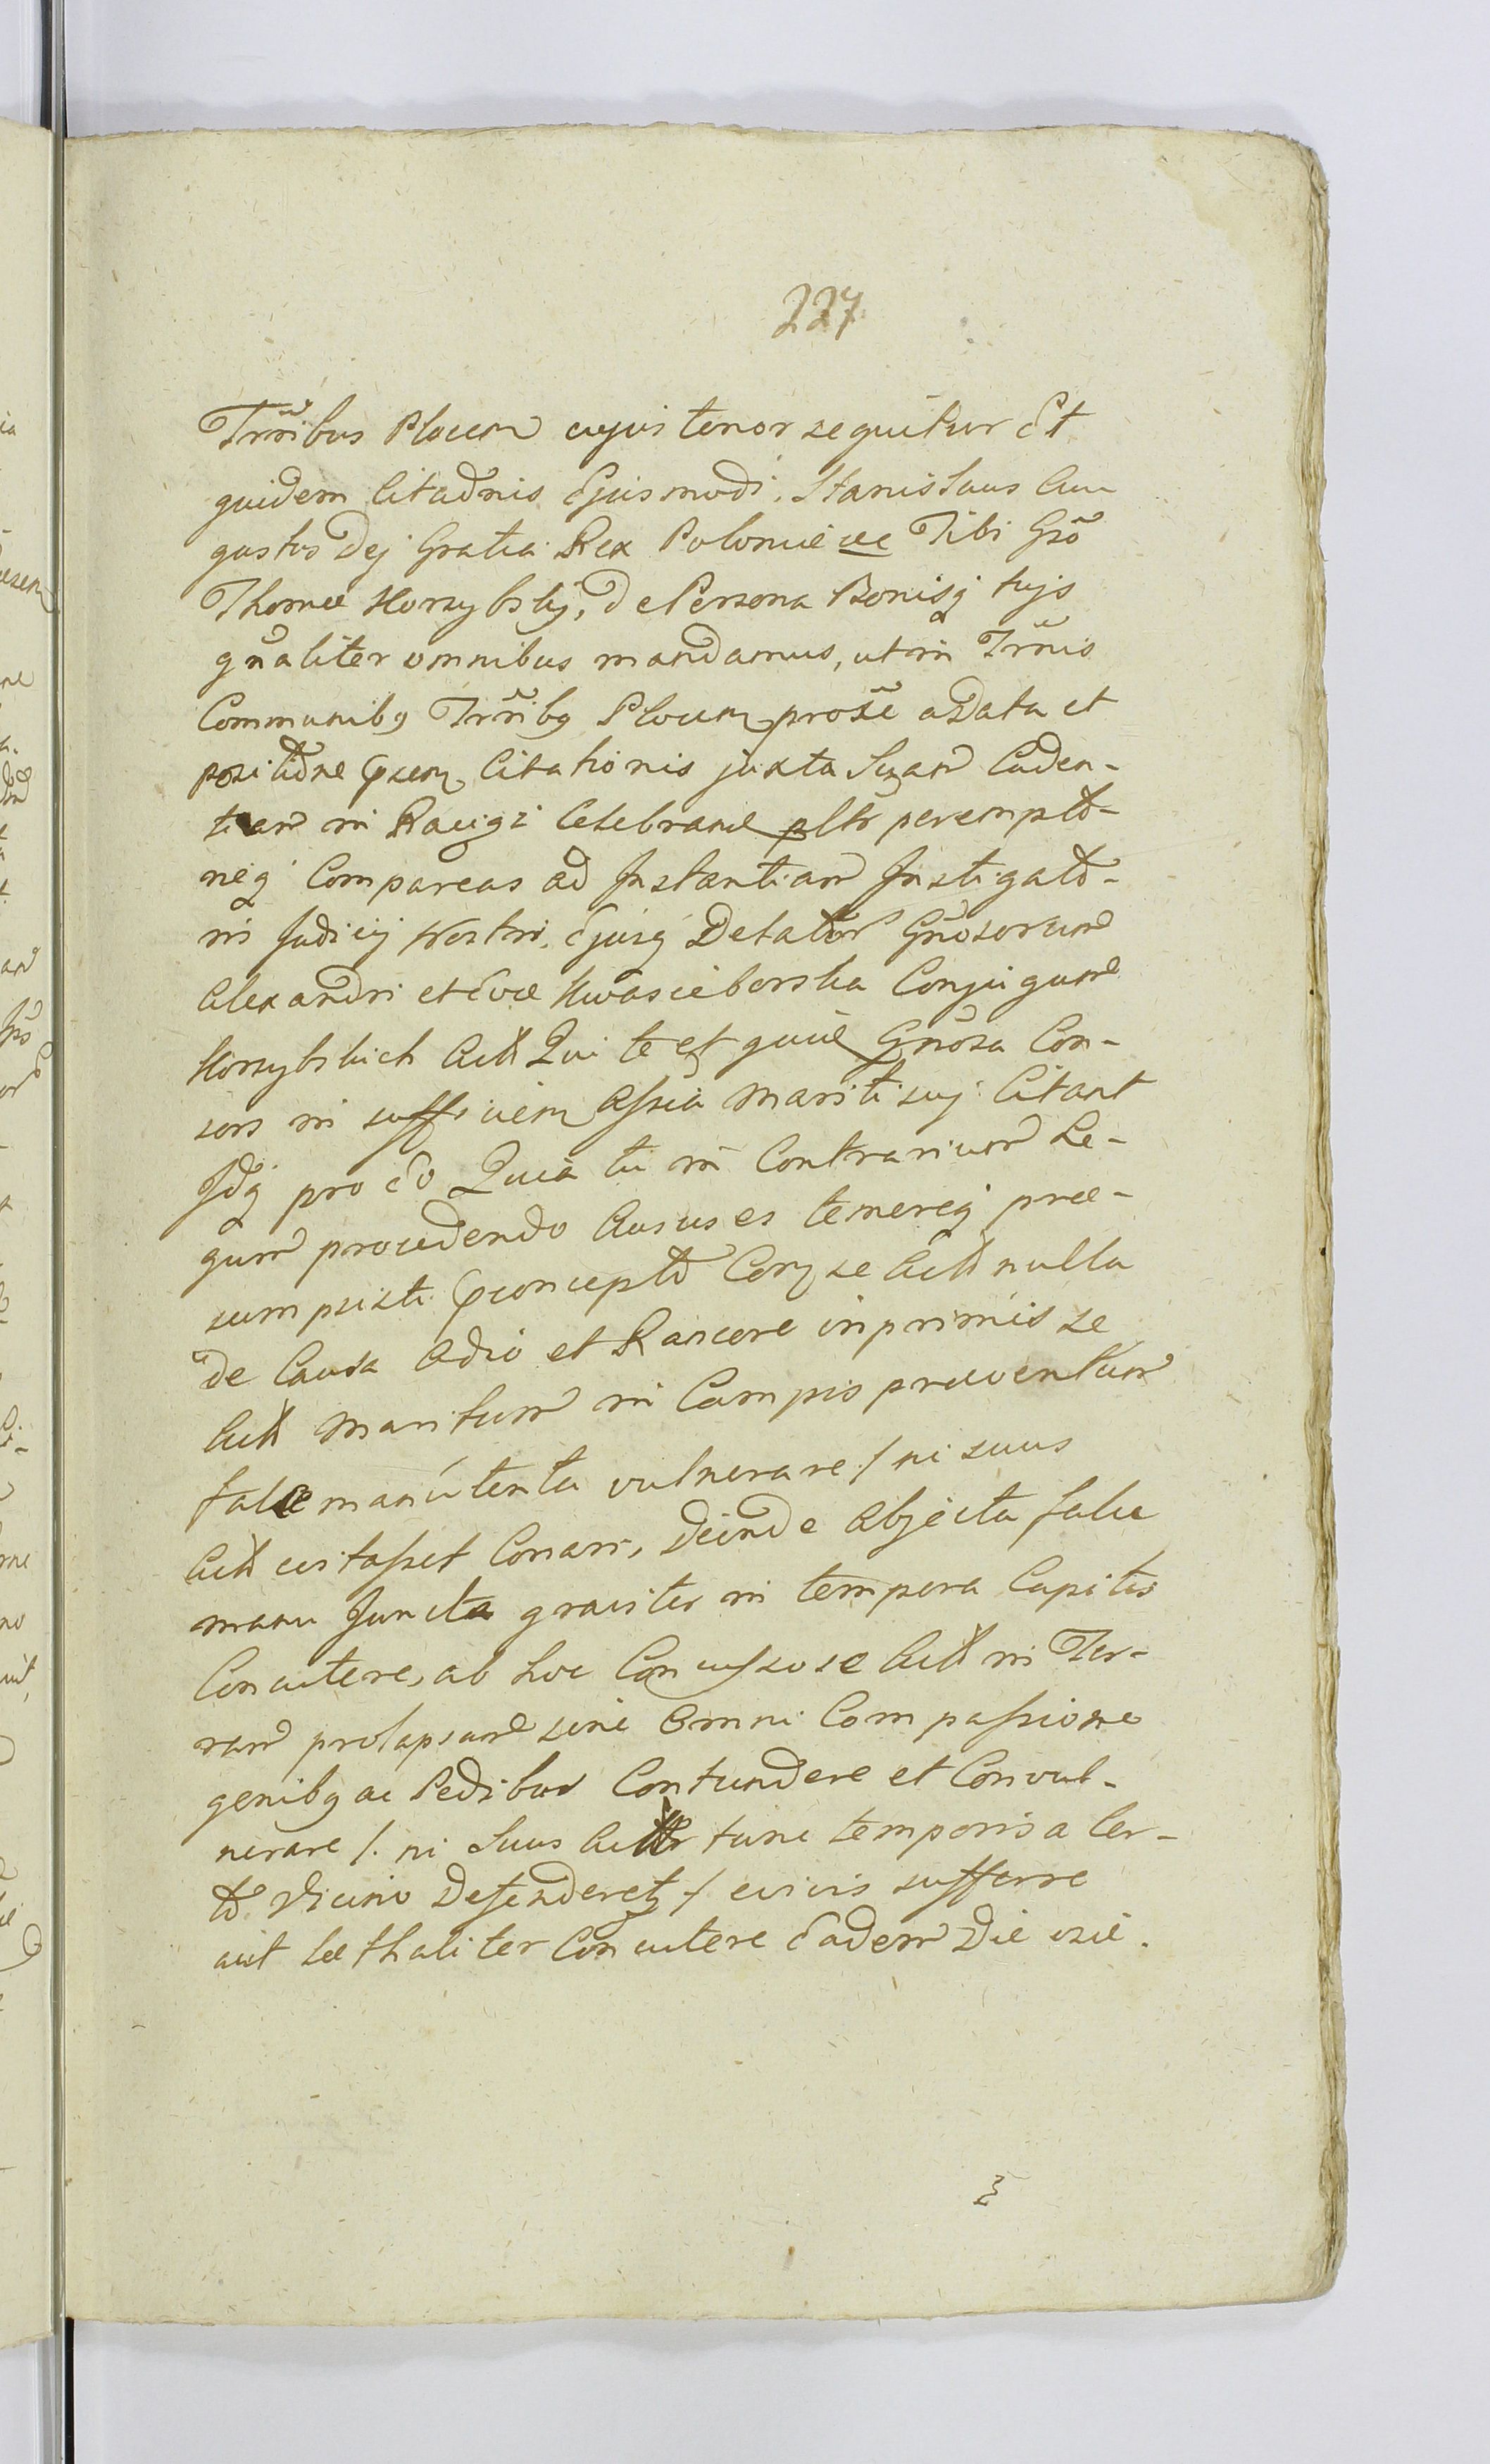 227
Trr̃ibus Plocen cujus tenor sequitur Et
quidem Citaõnis Ejusmodi. Stanislaus Au
gustus Dej Gratia Rex Poloniæ etc Tibi Gsõ
Thomæ Korzybskj, de Persona Bonisq tujs
gñaliter omnibus mandamus, ut in Trm̃is
Communibq Trr̃ibq Plocen proxẽ a Data et
positione Citationis juxta Suam Caden-
tiam in Raciąż Celebrand pltr perempto-
rieq Compareas ad Instantiam Instigato-
ris Judicij Nostri, Ejusq Delator Gñosorum
Alexandri et Evæ Kwasieborska Conjugum
Korzybskich Act Qui te et quid Gñosa Con-
sors in Assiã Mariti suj Citant
Idq pro Eo Quia tu in Contrarium Le-
gum procedendo Ausus es temereq præ-
sumpsisti concepto Con se Act nulla
de Causa Odio et Rancore inprimis se
Act Maritum in Campis præventum
falce manutenta vulnerare /. ni suus
Act evitasset Conari, Deinde Abjecta falce
manu Juncta graviter in tempora Capitis
Concutere, ab hoc Concusso se Act in Ter-
ram prolapsum sine Omni Compassione
genibq ac Pedibus Contundere et Convul-
nerare /. ni Suus Act tunc temporis a Cer-
to Vicino Defenderetq / evivis sufferre
aut Lethaliter Concutere Eadem Die